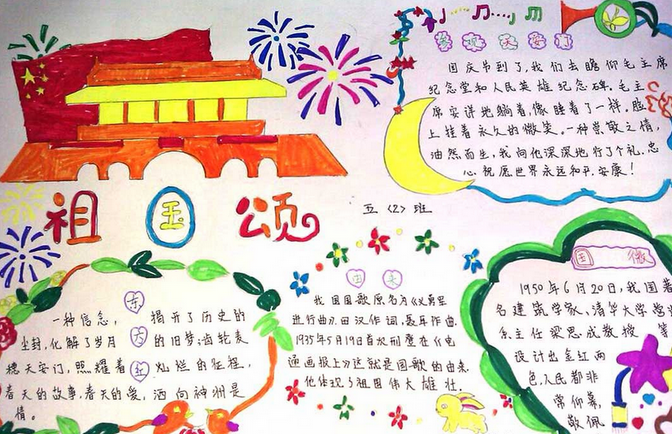 祖国颂
五〈2〉班
国庆节到了,我们去瞻仰毛主席
纪念堂和人民英雄纪念碑。毛主
席安详地躺着,像睡着了一样。脸
上挂着永久的微笑。一种崇敬之情,
油然而生,我向他深深地行了个礼。忠
心祝愿世界永远和平,安康!
东方红
一种信念,揭开了历史的
尘封,化解了岁月的旧梦;齿轮麦
穗天安门,照耀着灿烂的征程,
春天的故事,春天的爱,洒向神州是
情。
由来
我国国歌原名为《义勇军
进行曲》,田汉作词,聂耳作曲.
1935年5月19日首次刊登在《电
通画报上》这就是国歌的由来.
他体现了祖国伟大雄壮.
国徽
1950年6月20日,我国著
名建筑学家、清华大学
系主任梁思成教授
设计出金红两
色,人民都非
常仰慕,
敬佩